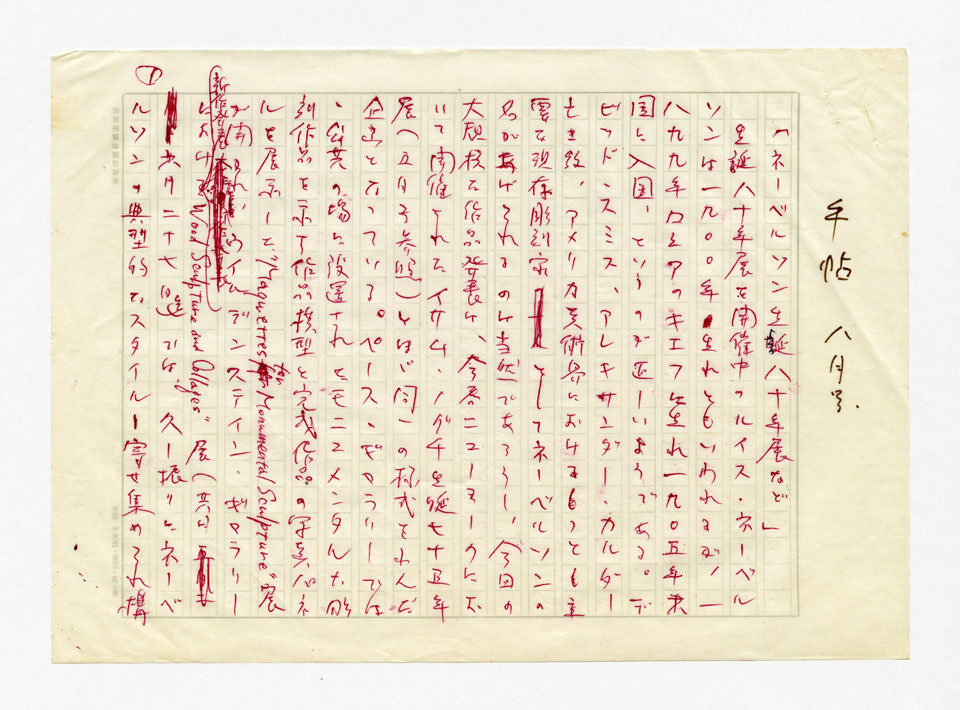 手帖 八月号.
「ネーベルソン生誕八十年展など」
生誕八十年展を開催中のルイス・ネーベル
ソンは一九〇〇年生れともいわれるが、一
八九九年ロシアのキエフに生れ一九〇五年米
国に入国、というのが正しいようである。デ
ビッド・スミス、アレキサンダー・カルダー
亡き後、アメリカ美術界におけるもっとも主
要な現存彫刻家としてネーベルソンの
名があげられるのは当然であろうし、今回の
大規模な作品発表は、今春ニューヨークにお
いて開催されたイサム・ノグチ生誕七十五年
展(五月号参照)とほぼ同一の様式をふんだ
企画となっている。ペース・ギャラリーでは
、公共の場に設置されたモニュメンタルな彫
刻作品を示す作品模型と完成作品の写真パネ
ルを展示した"Maquettes for Monumental Sculpture"展
が開かれ、ウイルデンステイン・ギャラリー
における新作発表 "Wood Sculpture and Collages" 展(共に
六月二十七日)では、久し振りにネーベ
ルソンの典型的なスタイルー寄せ集められ構
①